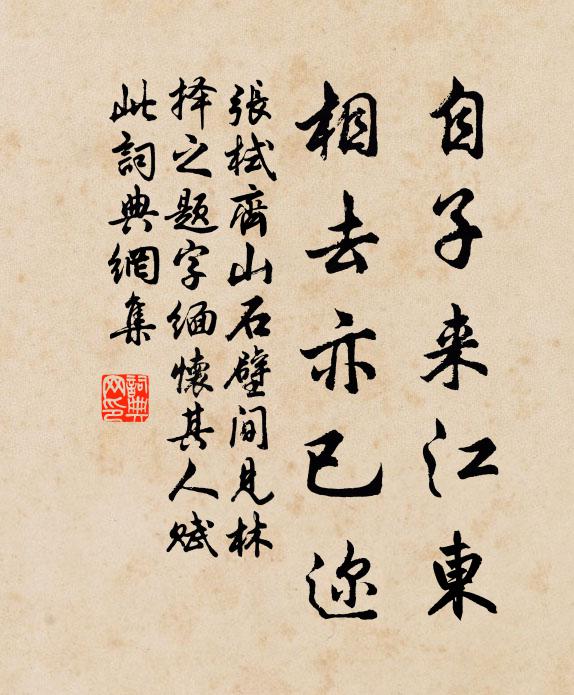 自子来江東
相去亦已迩
張栻齊山石壁间見林
择之题字缅懷其人赋
此詞典網集
詞典网印